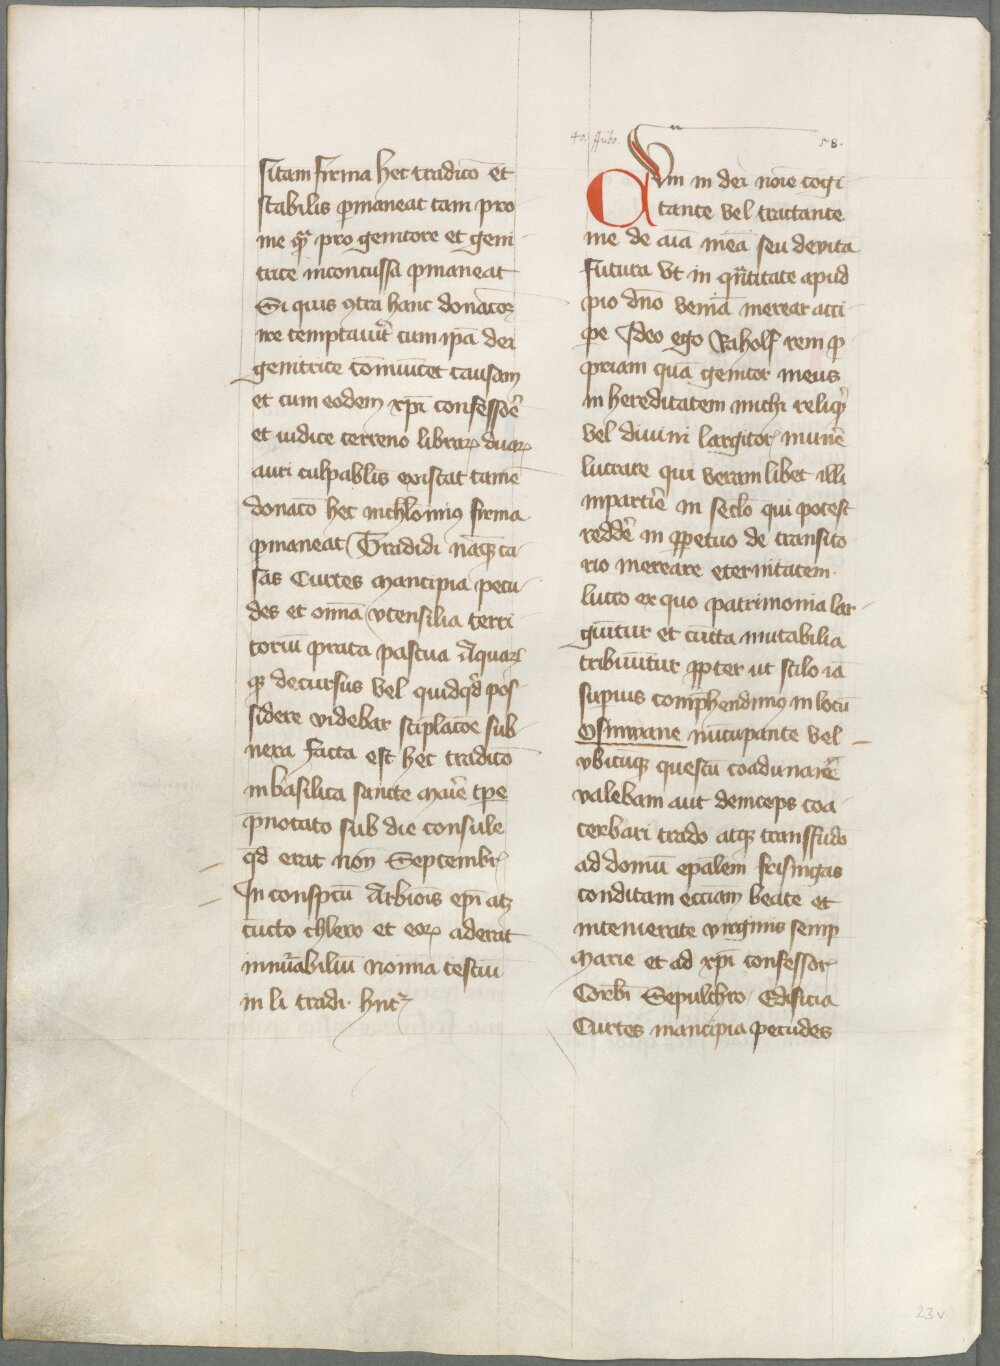 sitam firma hec tradicō et
stabilis ꝑmaneat tam pro
me qͣ pro genitore et geni
trice inconcussa ꝑmaneat
Si quis ꝯtra hanc donacōꝫ
ire temptauit̄ cum ip̄a dei
genitrice cōmunicet causam
et cum eodem xp̄i confessoē
et iudice terreno libraꝝ duaꝝ
auri culpablīs existat tamē
donacō hec nichlominꝰ firma
ꝑmaneat Tradidi naqꝫ ca
sas Curtes Mancipia pecu
des et om̄a vtensilia terri
toriū prata pascua Aquarū
qꝫ decursus vel quidqd̄ pos
sidere videbar stiplacōe sub
nexa facta est hec tradicō
in basilica sancte Marie tp̄e
p̄notato sub die consule
qd̄ erat non̄ Septembr̄
In conspcū Arbiōis ep̄i atꝫ
cūcto chlero et eoꝝ aderāt
innūabiliū nomīa testiū
in li tradi· hnt᷑
40. Aribo. 58.
Cum in dei noīe cogi
tante vel tractante
me de aīa mea seu de vita
futura vt in qntitate apud
pio dn̄o veniā merear acci
pe Ideo ego Raholf rem ꝓ
priam qua genitor meus
in hereditatem michi reliqt̄
vel diuini largitor munē
lucrare qui veram libet illi
impartiē in secl̄o qui potest
reddē in ꝑpetuo de transito
rio mereare eternitatem·
lucro ex quo patrimonia lar
giūtur et cūcta mutabilia
tribuūtur ꝓpter ut stilo iā
supius comp̄hendimꝰ in locū
Osinwane nūcupante vel
vbicūqꝫ questū coadunarē
valebam aut deinceps coa
cerbari trado atqꝫ transfūdo
ad domū epalem frisingas
conditam ecc̄iam beate et
intemerate virginis semp
Marie et ad xp̄i confessor
Corbī Sepulchro Edificia
Curtes mancipia pecudes
23v